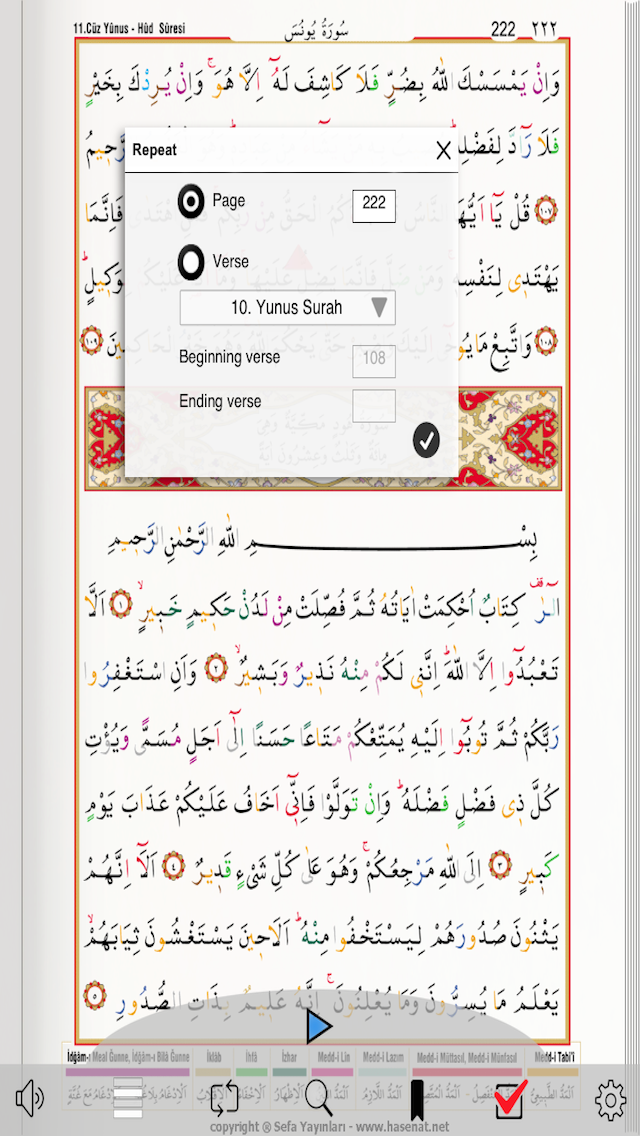 11.Cüz Yûnus - Hûd Sûresi
سُورَةُ يُونُسَ
222 ٢٢٢
وَاِنْ يَمْسَسْكَ اللّٰهُ بِضُرٍّ فَلَا كَاشِفَ لَهُٓ اِلَّا هُوَۚ وَاِنْ يُرِدْكَ بِخَيْرٍ
فَلَا رَٓادَّ لِفَضْلِهٖ
Repeat
Page
222
١٠٧ قُلْ يَٓا اَيُّهَا
فَاِنَّمَا
Verse
يَهْتَدٖي لِنَفْسِهٖۚ
بِوَكٖيلٍۜ
10. Yunus Surah
١٠٨ وَاتَّبِعْ مَا يُوحٰٓى
١٠٩
Beginning verse
108
Ending verse
بِسْمِ اللّٰهِ الرَّحْمٰنِ الرَّحٖيمِ
الٓرٰ۠ كِتَابٌ اُحْكِمَتْ اٰيَاتُهُ ثُمَّ فُصِّلَتْ مِنْ لَدُنْ حَكٖيمٍ خَبٖيرٍۙ ١ اَلَّا
تَعْبُدُٓوا اِلَّا اللّٰهَۜ اِنَّنٖي لَكُمْ مِنْهُ نَذٖيرٌ وَبَشٖيرٌۙ ٢ وَاَنِ اسْتَغْفِرُوا
رَبَّكُمْ ثُمَّ تُوبُٓوا اِلَيْهِ يُمَتِّعْكُمْ مَتَاعًا حَسَنًا اِلٰٓى اَجَلٍ مُسَمًّى وَيُؤْتِ
كُلَّ ذٖي فَضْلٍ فَضْلَهُۜ وَاِنْ تَوَلَّوْا فَاِنّٖٓي اَخَافُ عَلَيْكُمْ عَذَابَ يَوْمٍ
كَبٖيرٍ ٣ اِلَى اللّٰهِ مَرْجِعُكُمْۚ وَهُوَ عَلٰى كُلِّ شَيْءٍ قَدٖيرٌ ٤ اَلَٓا اِنَّهُمْ
يَثْنُونَ صُدُورَهُمْ لِيَسْتَخْفُوا مِنْهُۜ اَلَا حٖينَ يَسْتَغْشُونَ ثِيَابَهُمْۙ
يَعْلَمُ مَا يُسِرُّونَ وَمَا يُعْلِنُونَۚ اِنَّهُ عَلٖيمٌ بِذَاتِ الصُّدُورِ ٥
İdğâm-ı Meal Ğunne, İdğâm-ı Bilâ Ğunne İklâb İhfâ İzhar Medd-i Lin Medd-i Lazım Medd-i Müttasıl, Medd-i Münfasıl Medd-i Tabi'î
copyright @ Sefa Yayınları - www.hasenat.net